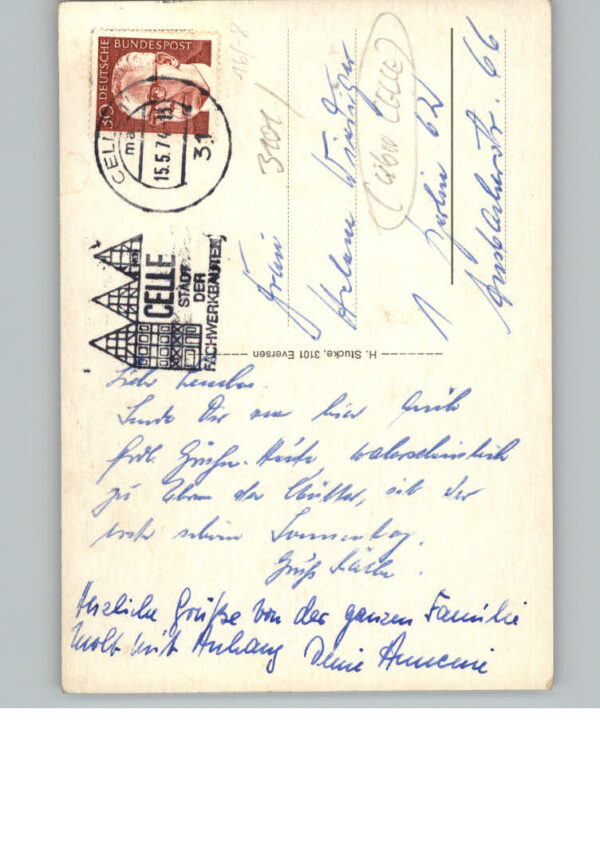 30 DEUTSCHE BUNDESPOST
CELLE
15.5.74-18
31
CELLE
STADT
DER
FACHWERKBAUTEN
16/-8
3101/
Frau
1 Berlin 62
66
H. Stucke, 3101 Eversen
Liebe
Sende Dir von hier
frdl. Grüße. Heute wahrscheinlich
zu Ehren der Mütter, ist der
erste schöne Sonnentag.
Gruß Käthe.
Herzliche Grüße von der ganzen Familie
mit Anhang Deine Annemie